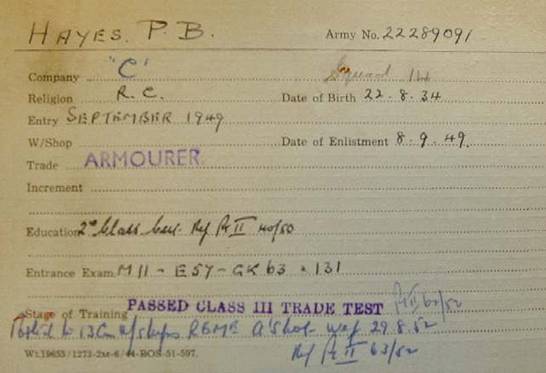 HAYES. P. B. Army No. 22289091
Company "C" Squad 14
Religion R.C. Date of Birth 22.8.34
Entry SEPTEMBER 1949
W/Shop Date of Enlistment 8.9.49.
Trade ARMOURER
Increment
Education 2nd Class Cert. Ref Pt II 40/50
Entrance Exam. M11 - E57 - GK 63 = 131
Stage of Training PASSED CLASS III TRADE TEST Pt II 60/52
Posted to 13 Cm w/shops REME A'Shot wef 29.8.52
Ref Pt II 63/52
Wt.19653/1273-2M-6/44-BOS-51-597.